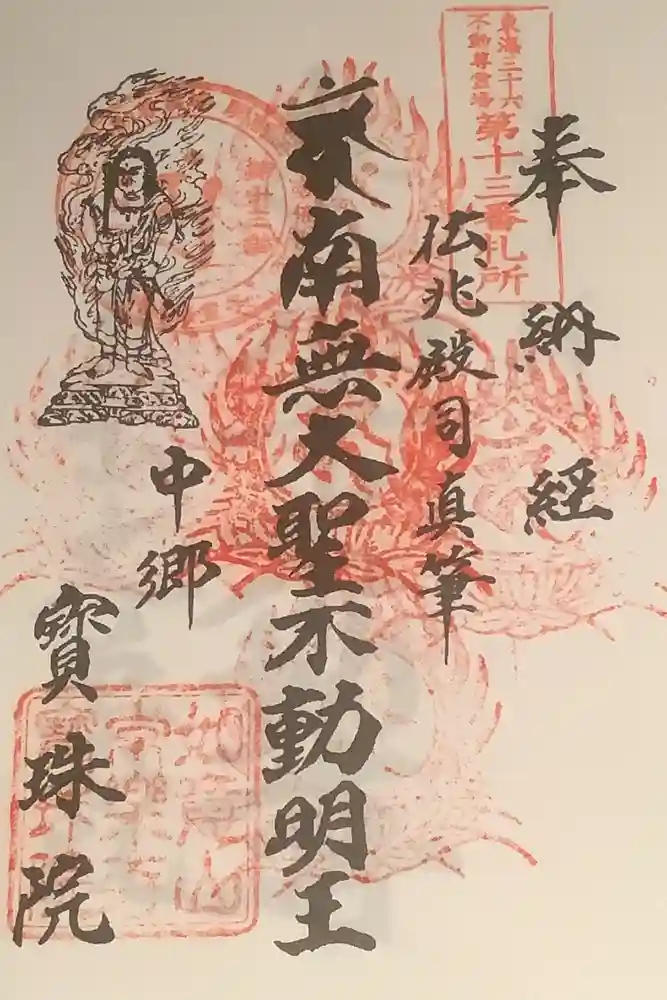 東海三十六
不動尊霊場
第十三番札所
奉納経
伝兆殿司真筆
南無大聖不動明王
中郷
寶珠院